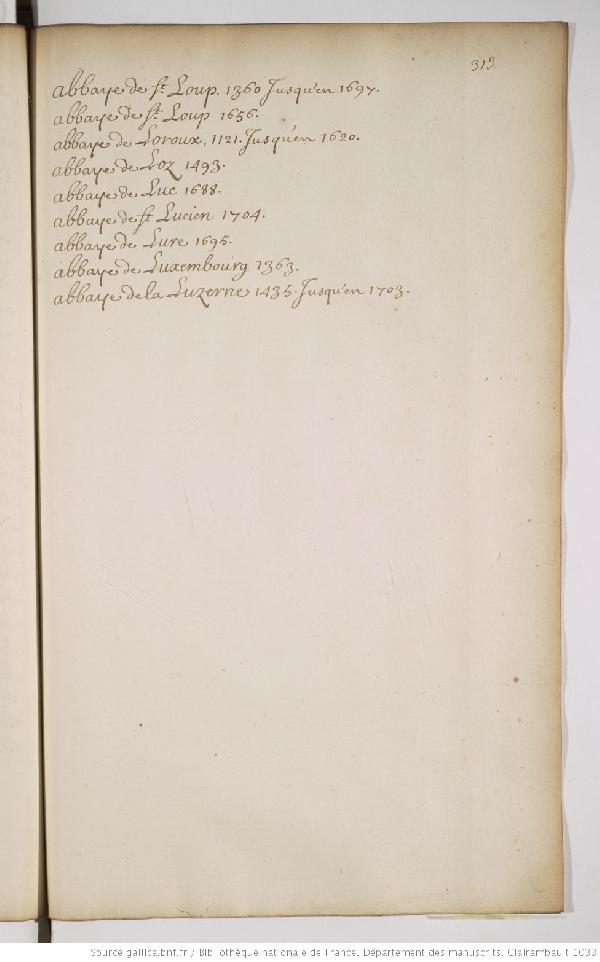 313
abbaye de St. Loup. 1360 Jusqu'en 1697.
abbaye de St. Loup 1656.
abbaye de Loroux, 1121. Jusqu'en 1620.
abbaye de Loz 1493.
abbaye de Luc 1688.
abbaye de St. Lucien 1704.
abbaye de Lure 1695.
abbaye de Luxembourg 1363.
abbaye de la Luzerne 1435. Jusqu'en 1703.
Source gallica.bnf.fr / Bibliothèque nationale de France. Département des manuscrits. Clairambault 1033